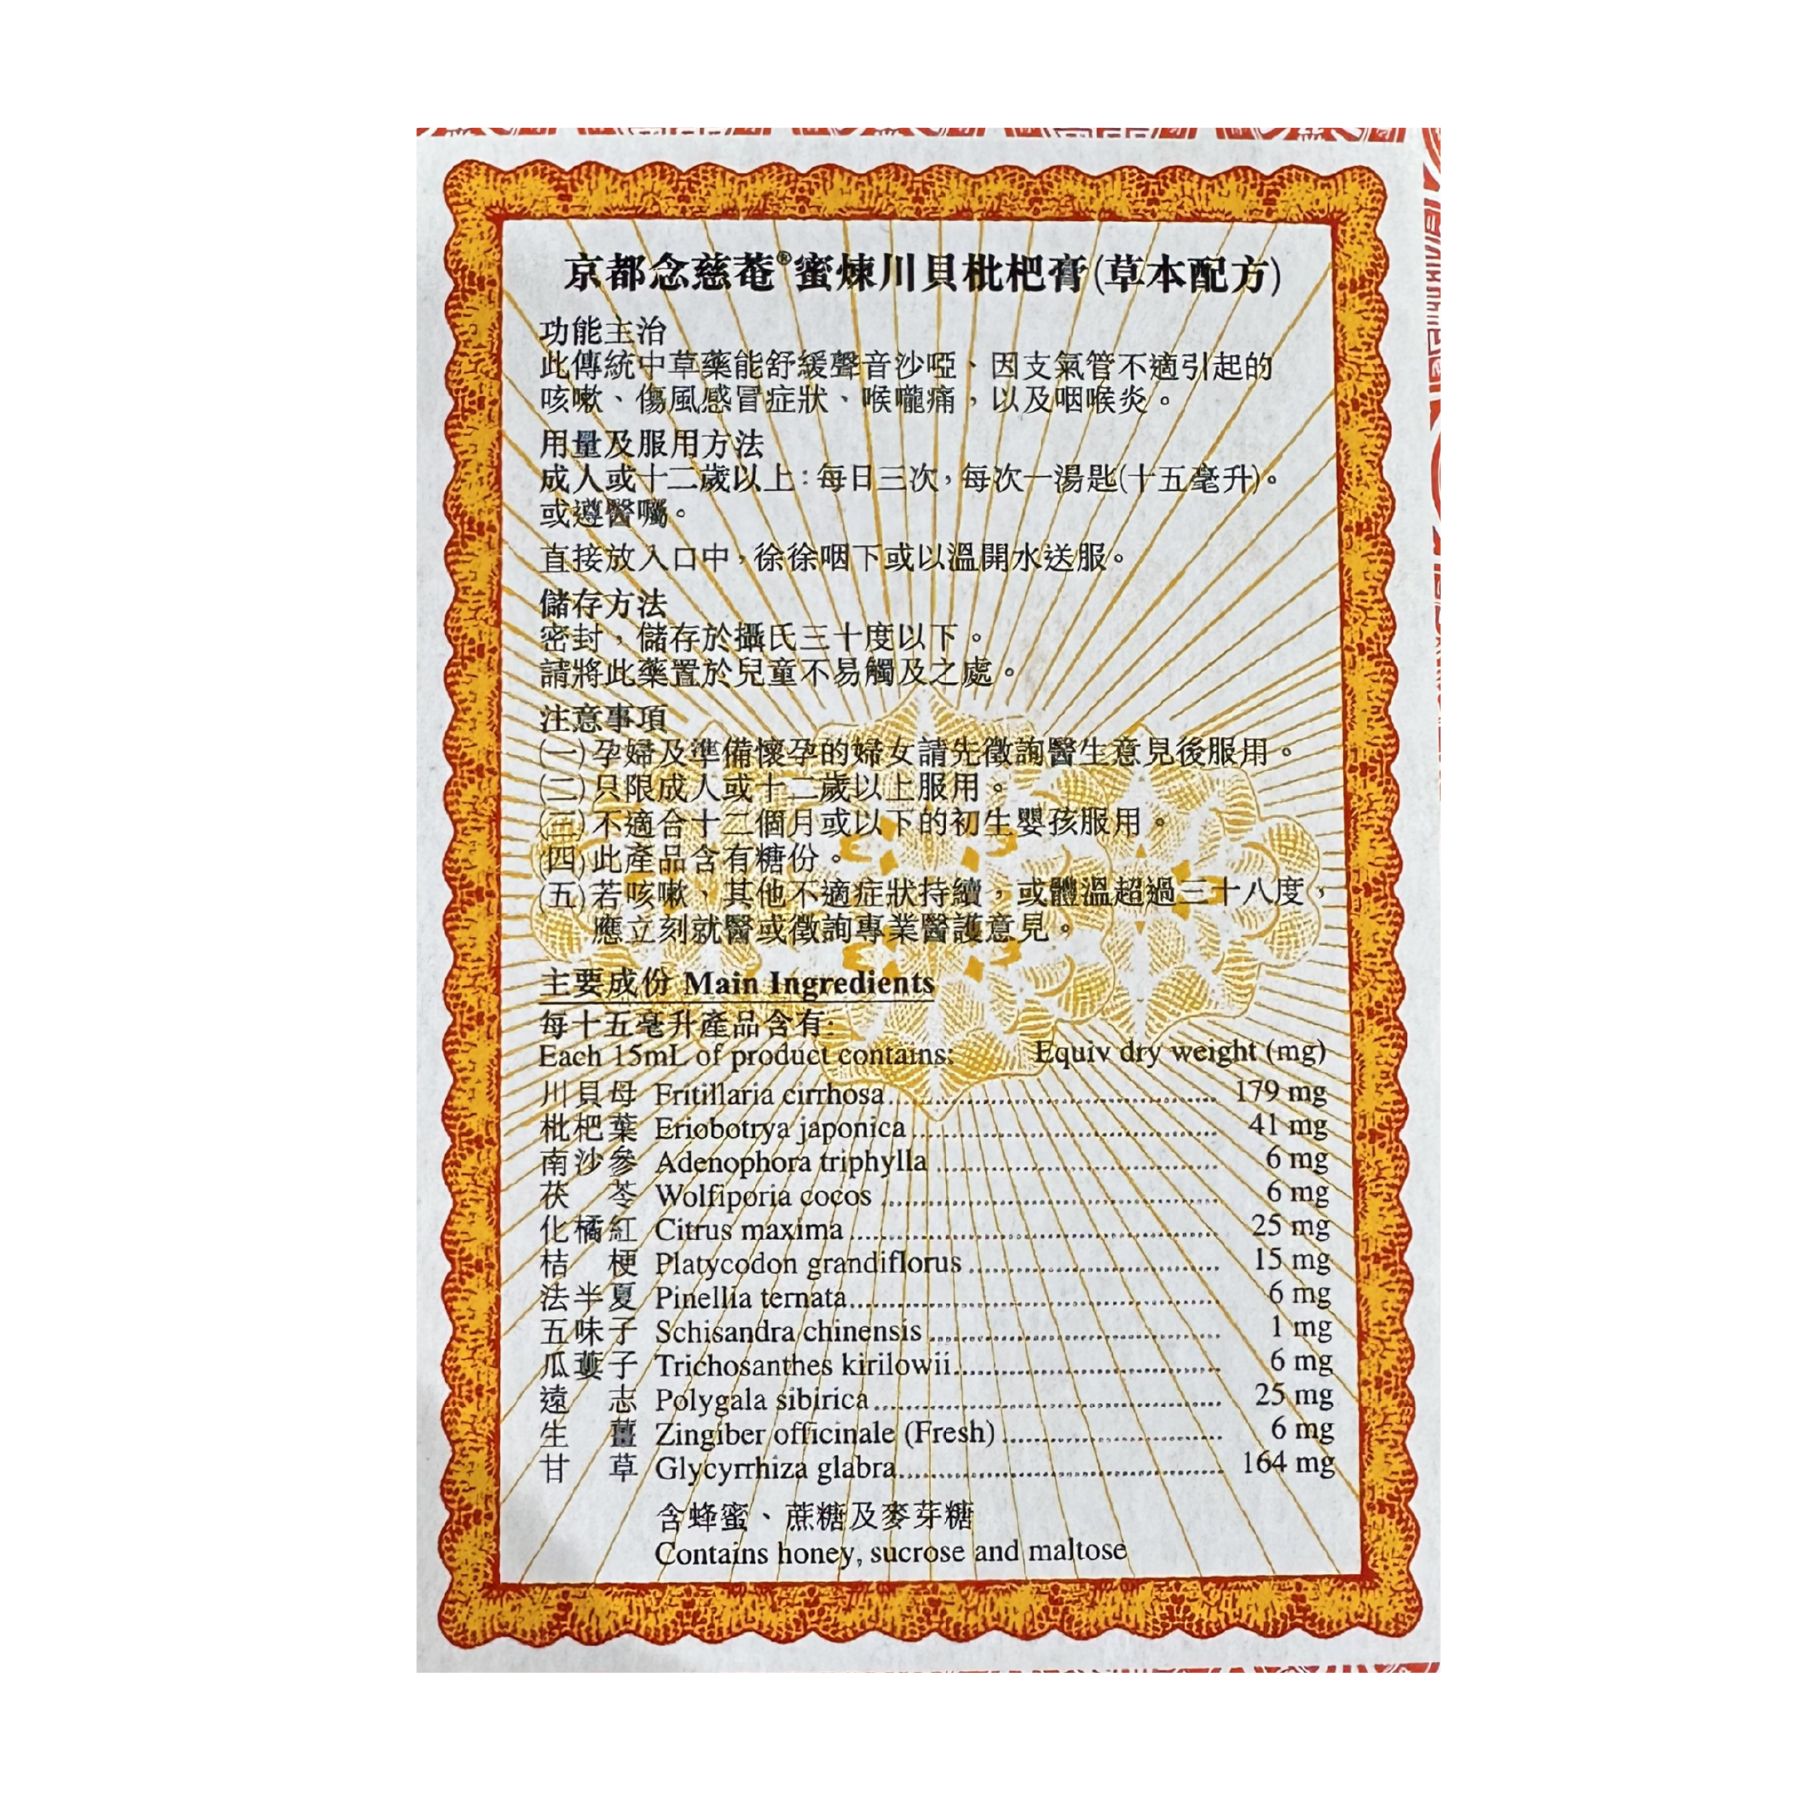 京都念慈菴®蜜煉川貝枇杷膏(草本配方)
功能主治
此傳統中草藥能舒緩聲音沙啞、因支氣管不適引起的
咳嗽、傷風感冒症狀、喉嚨痛，以及咽喉炎。
用量及服用方法
成人或十二歲以上：每日三次，每次一湯匙(十五毫升)。
或遵醫囑。
直接放入口中，徐徐咽下或以溫開水送服。
儲存方法
密封，儲存於攝氏三十度以下。
請將此藥置於兒童不易觸及之處。
注意事項
(一)孕婦及準備懷孕的婦女請先徵詢醫生意見後服用。
(二)只限成人或十二歲以上服用。
(三)不適合十二個月或以下的初生嬰孩服用。
(四)此產品含有糖份。
(五)若咳嗽、其他不適症狀持續，或體溫超過三十八度，
應立刻就醫或徵詢專業醫護意見。
主要成份 Main Ingredients
每十五毫升產品含有:
Each 15mL of product contains: Equiv dry weight (mg)
川貝母 Fritillaria cirrhosa 179 mg
枇杷葉 Eriobotrya japonica 41 mg
南沙參 Adenophora triphylla 6 mg
茯苓 Wolfiporia cocos 6 mg
化橘紅 Citrus maxima 25 mg
桔梗 Platycodon grandiflorus 15 mg
法半夏 Pinellia ternata 6 mg
五味子 Schisandra chinensis 1 mg
瓜蔞子 Trichosanthes kirilowii 6 mg
遠志 Polygala sibirica 25 mg
生薑 Zingiber officinale (Fresh) 6 mg
甘草 Glycyrrhiza glabra 164 mg
含蜂蜜、蔗糖及麥芽糖
Contains honey, sucrose and maltose